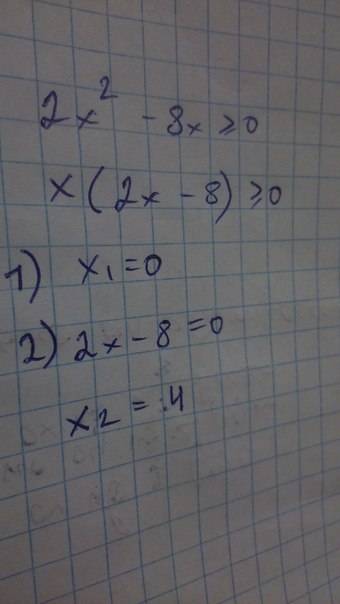 2x² - 8x ≥ 0
x(2x - 8) ≥ 0
1) x₁ = 0
2) 2x - 8 = 0
x₂ = 4